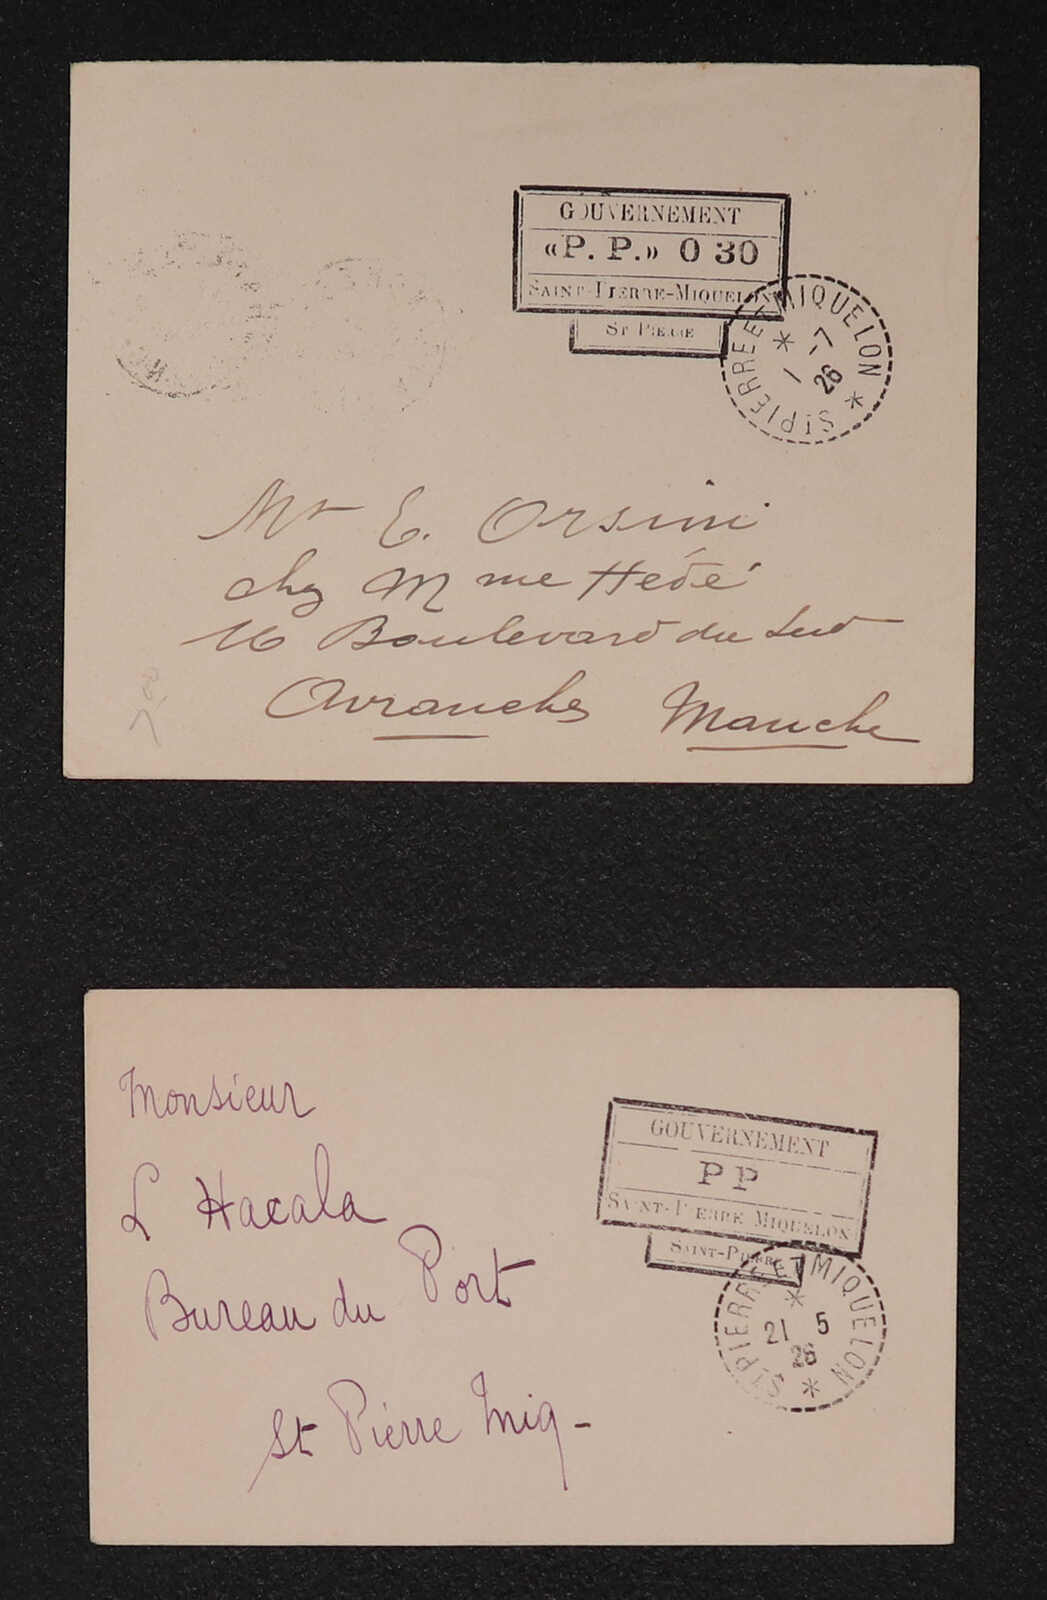 GOUVERNEMENT
«P. P.» 0 30
SAINT-PIERRE-MIQUELON
ST PIERRE
ST PIERRE ET MIQUELON
1 -7
26
Mr E. Orsini
chez Mme Hédé
16 Boulevard du Sud
Avranches Manche
GOUVERNEMENT
P P
SAINT-PIERRE MIQUELON
SAINT-PIERRE
ST PIERRE ET MIQUELON
21 5
26
Monsieur
L Hacala
Bureau du Port
St Pierre Miq-